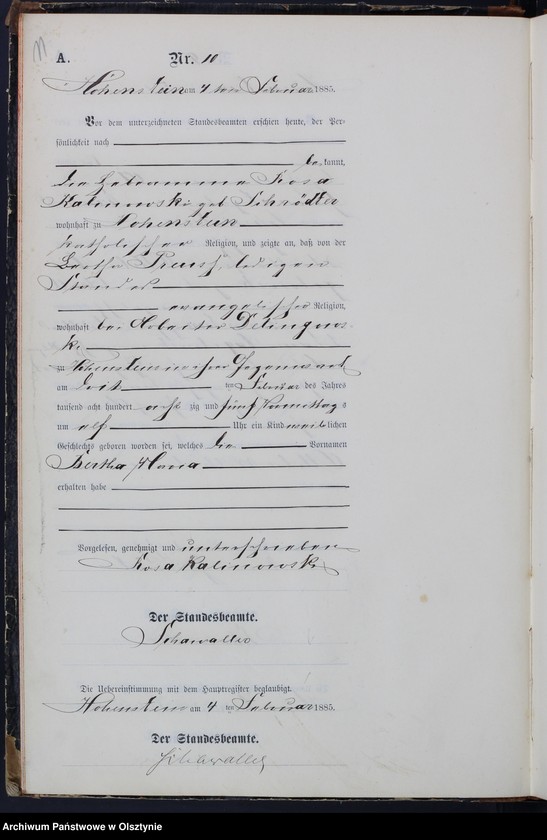 11
A. Nr. 10
Hohenstein am 4 ten Februar 1885.
Vor dem unterzeichneten Standesbeamten erschien heute, der Per-
sönlichkeit nach
bekannt,
die Hebamme Rosa
Kalinowski geb Schrödter
wohnhaft zu Hohenstein
katholischer Religion, und zeigte an, daß von der
Bertha Preuß, ledigen
Standes
evangelischer Religion,
wohnhaft bei
zu Hohenstein
am ten Februar des Jahres
tausend acht hundert acht zig und fünf Vormittags
um elf Uhr ein Kind weiblichen
Geschlechts geboren worden sei, welches die Vornamen
Bertha
erhalten habe
Vorgelesen, genehmigt und unterschrieben
Rosa Kalinowski
Der Standesbeamte.
Schawaller
Die Uebereinstimmung mit dem Hauptregister beglaubigt.
Hohenstein am 4 ten Februar 1885.
Der Standesbeamte.
Schawaller
Archiwum Państwowe w Olsztynie